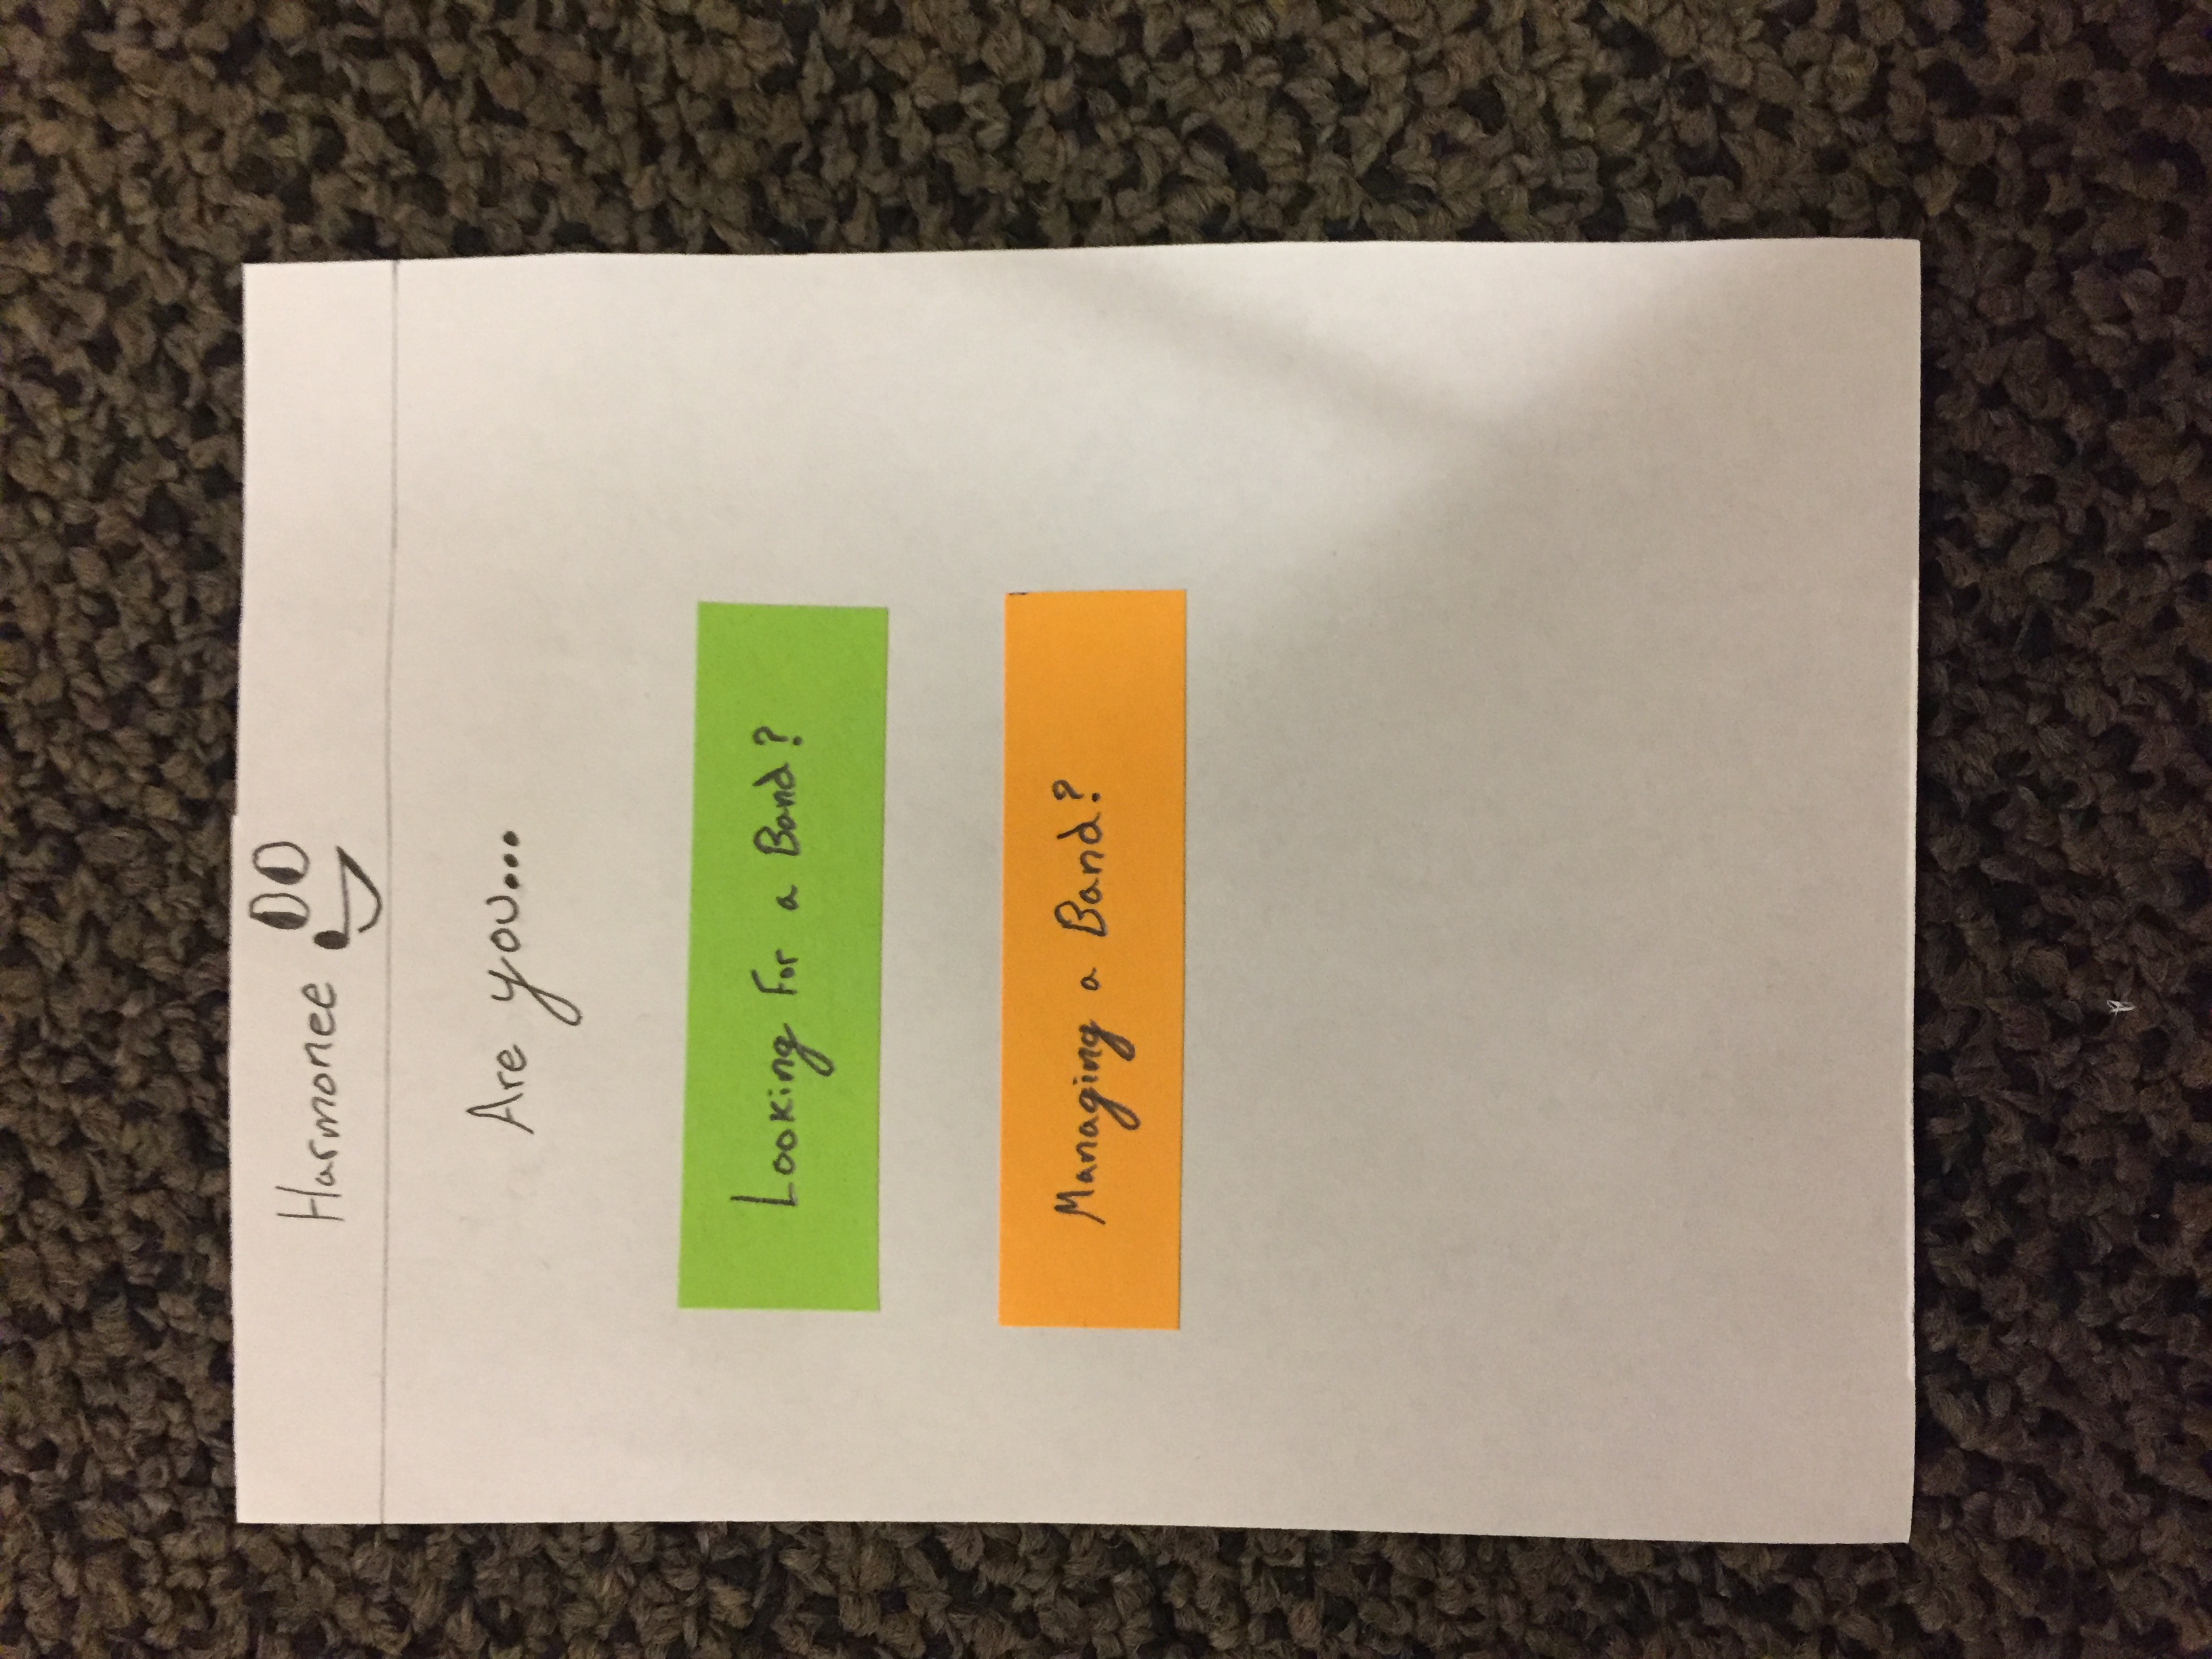 Harmonee
Are you...
Looking For a Band?
Managing a Band?